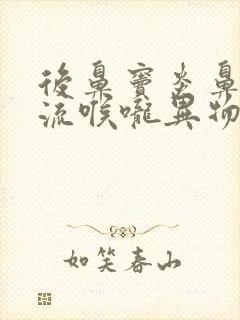 後鼻竇炎鼻
流喉嚨異物
如笑春山